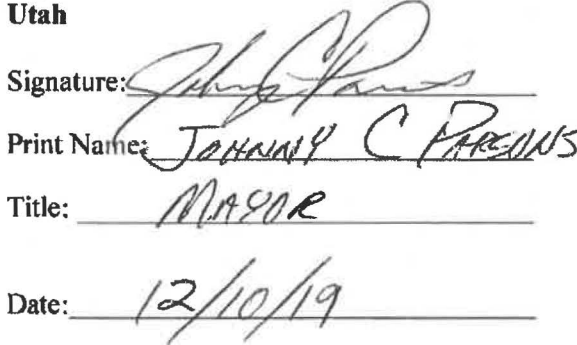 Utah
Signature: Johnny C Parsons
Print Name: JOHNNY C PARSONS
Title: MAYOR
Date: 12/10/19